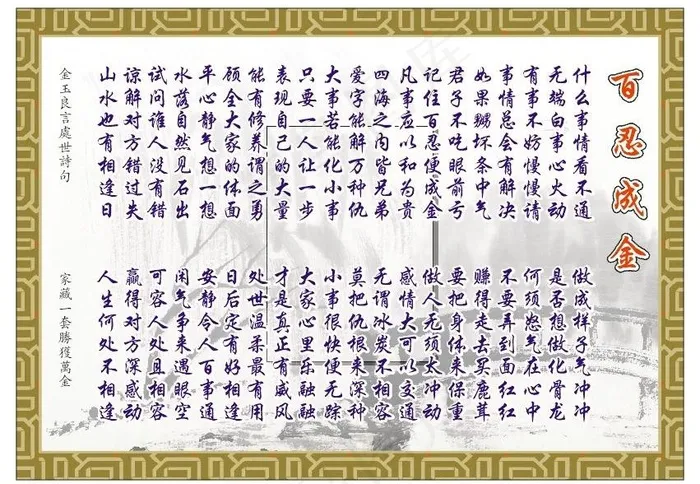 百忍成金
什么事情看不通
做成样子气冲冲
无端向事心火动
是否想做化骨龙
有事不妨慢慢请
何须怒气在心中
事情总会有解决
不要弄到面红红
如果嬲坏条中气
赚得走去买鹿茸
君子不吃眼前亏
要把身体来保重
记住百忍便成金
做人无须太冲动
凡事应以和为贵
感情大可以交通
四海之内皆兄弟
无谓冰炭不相容
爱字能解万种仇
莫把仇根来深种
大事若能化小事
小事很快便无踪
只要一人让一步
大家心里乐融融
表现自己的大量
才是真正有威风
能有修养谓之勇
处世温柔最有用
顾全大家的体面
日后定有好相逢
平心静气想一想
安静令人百事通
水落自然见石出
闲气争来遇眼空
试问谁人没有错
可容人处且相容
谅解对方错过失
赢得对方深感动
山水也有相逢日
人生何处不相逢
金玉良言處世詩句
家藏一套勝獲萬金